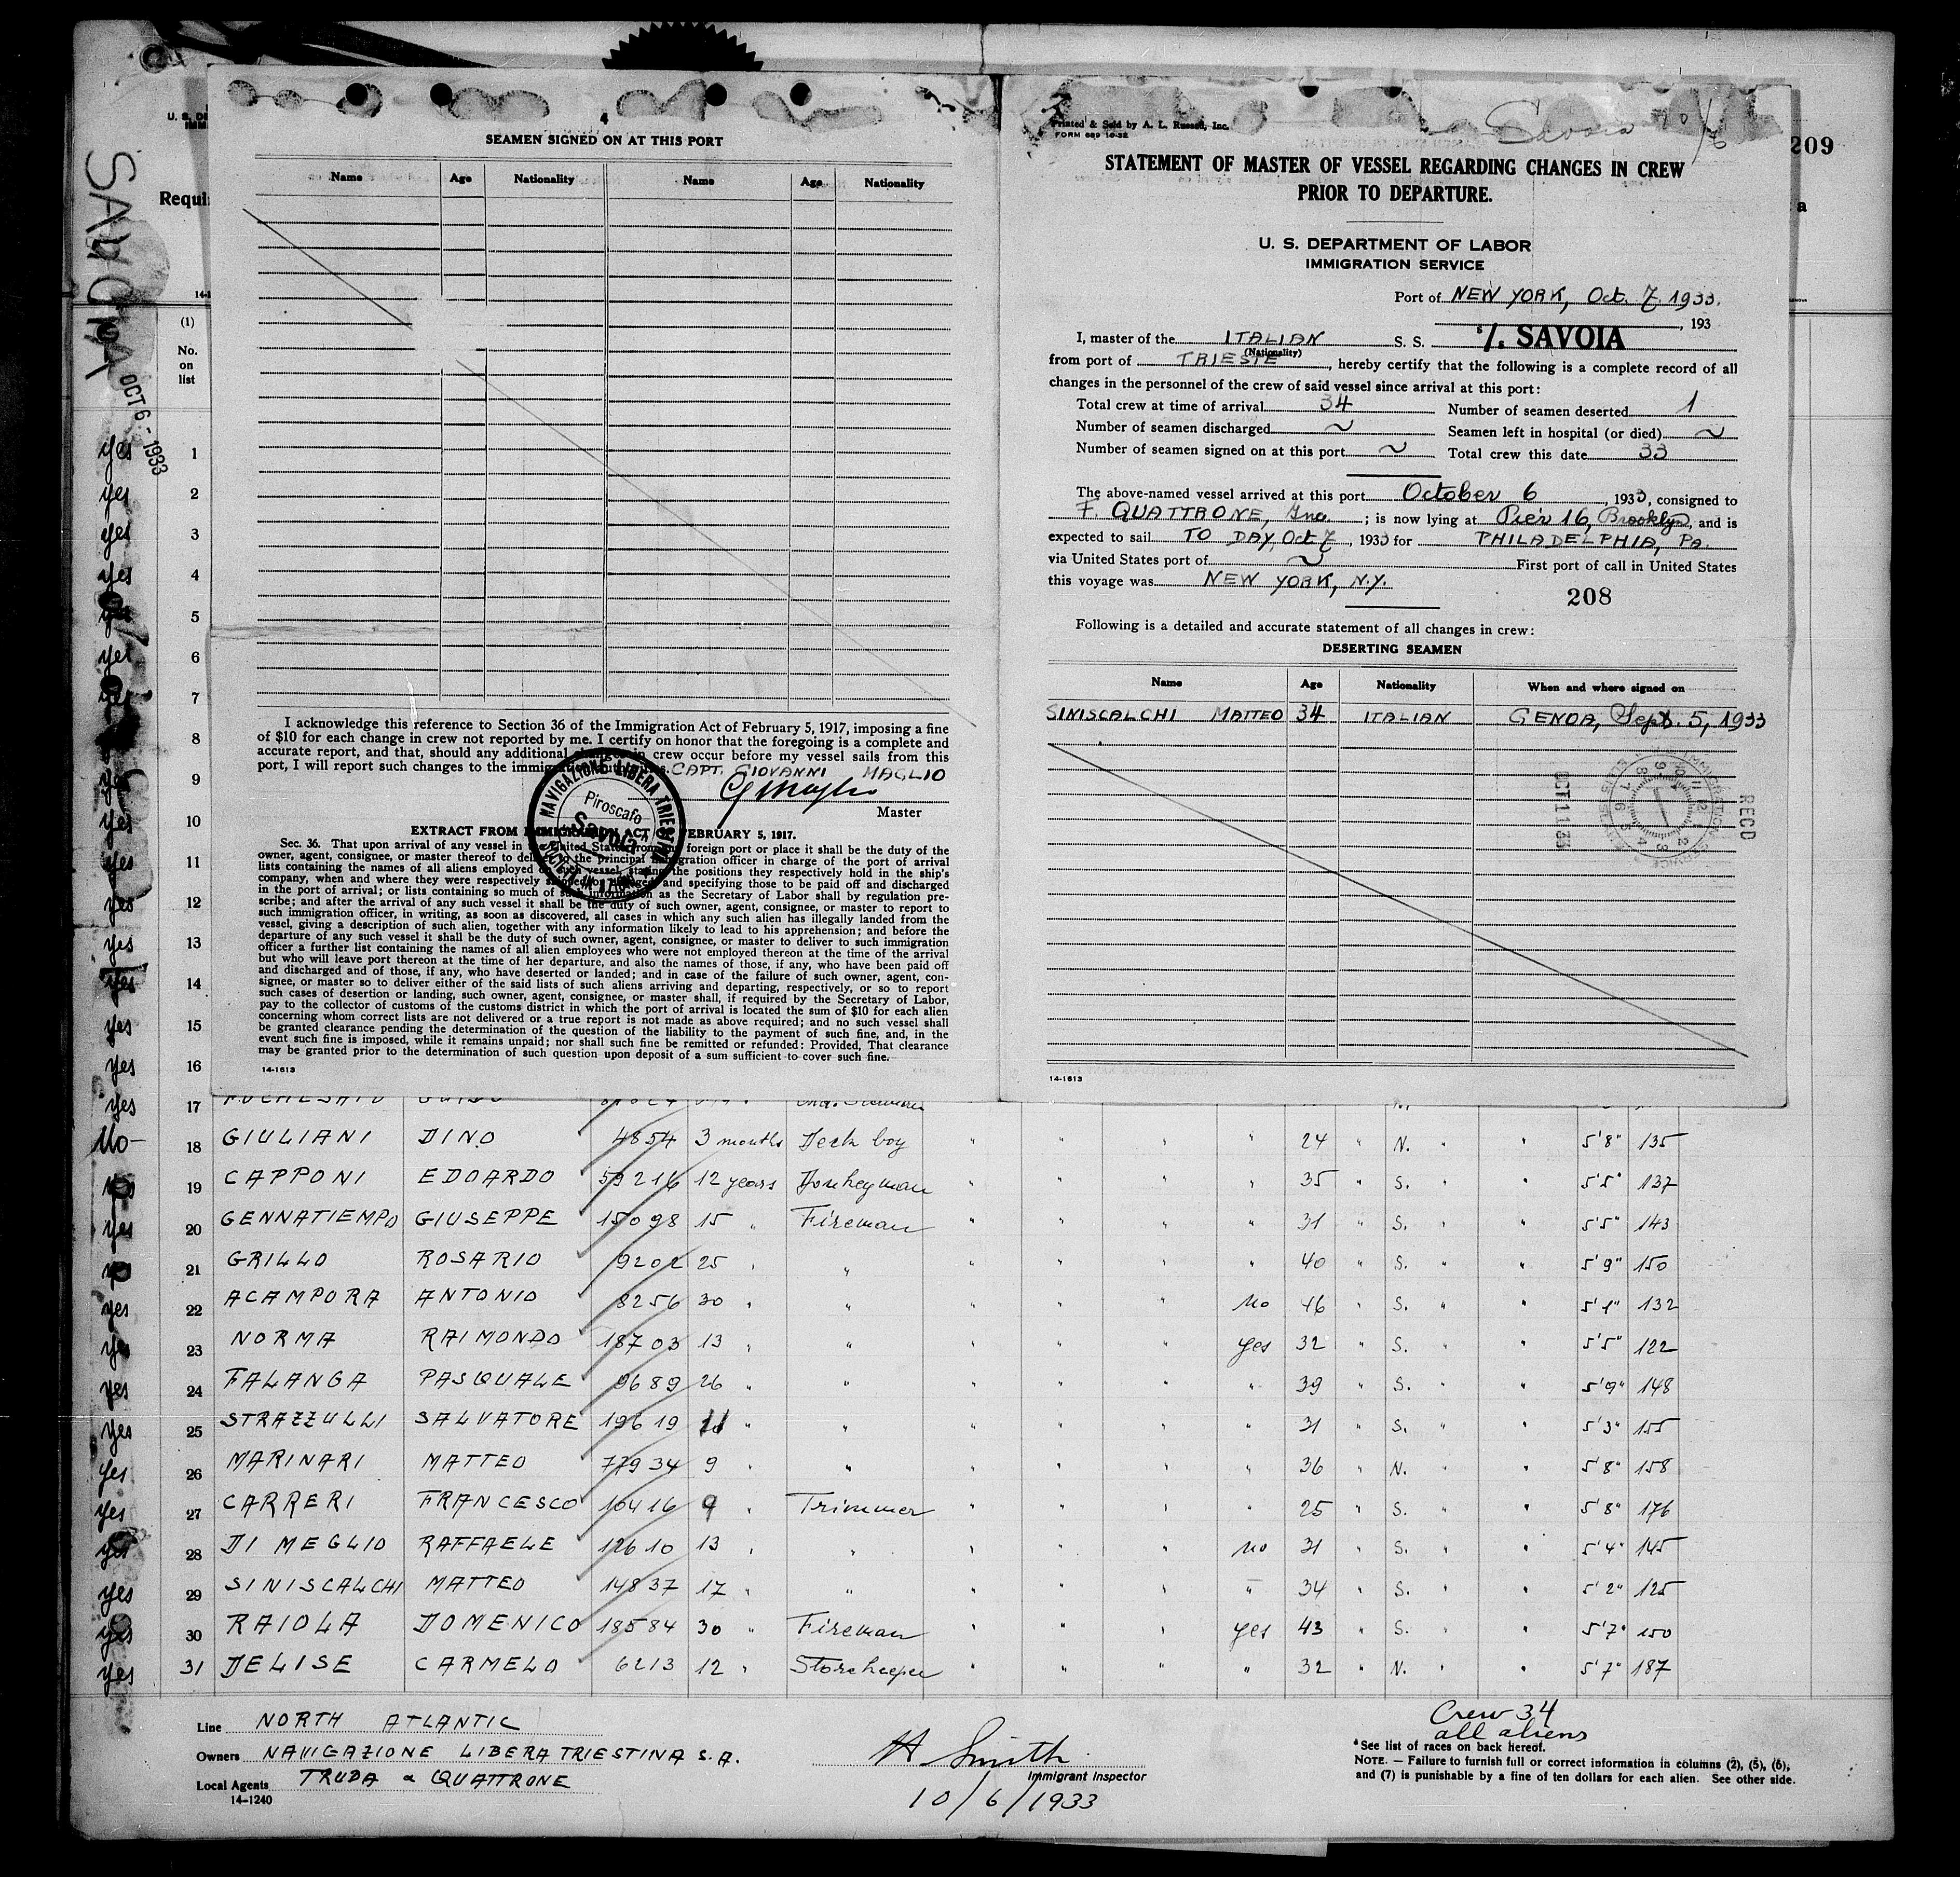 SAVOIA
OCT 6 - 1933
209
4
SEAMEN SIGNED ON AT THIS PORT
Name Age Nationality Name Age Nationality
I acknowledge this reference to Section 36 of the Immigration Act of February 5, 1917, imposing a fine
of $10 for each change in crew not reported by me. I certify on honor that the foregoing is a complete and
accurate report, and that, should any additional changes in crew occur before my vessel sails from this
port, I will report such changes to the
CAPT. GIOVANNI MAGLIO
G Maglio
Master
NAVIGAZIONE LIBERA TRIESTINA
Piroscafo
"Savoia"
EXTRACT FROM IMMIGRATION ACT FEBRUARY 5, 1917.
Sec. 36. That upon arrival of any vessel in the United States from foreign port or place it shall be the duty of the
owner, agent, consignee, or master thereof to deliver to the principal immigration officer in charge of the port of arrival
lists containing the names of all aliens employed on such vessel, stating the positions they respectively hold in the ship's
company, when and where they were respectively shipped or engaged, and specifying those to be paid off and discharged
in the port of arrival; or lists containing so much of such information as the Secretary of Labor shall by regulation pre-
scribe; and after the arrival of any such vessel it shall be the duty of such owner, agent, consignee, or master to report to
such immigration officer, in writing, as soon as discovered, all cases in which any such alien has illegally landed from the
vessel, giving a description of such alien, together with any information likely to lead to his apprehension; and before the
departure of any such vessel it shall be the duty of such owner, agent, consignee, or master to deliver to such immigration
officer a further list containing the names of all alien employees who were not employed thereon at the time of the arrival
but who will leave port thereon at the time of her departure, and also the names of those, if any, who have been paid off
and discharged and of those, if any, who have deserted or landed; and in case of the failure of such owner, agent, con-
signee, or master so to deliver either of the said lists of such aliens arriving and departing, respectively, or so to report
such cases of desertion or landing, such owner, agent, consignee, or master shall, if required by the Secretary of Labor,
pay to the collector of customs of the customs district in which the port of arrival is located the sum of $10 for each alien
concerning whom correct lists are not delivered or a true report is not made as above required; and no such vessel shall
be granted clearance pending the determination of the question of the liability to the payment of such fine, and, in the
event such fine is imposed, while it remains unpaid; nor shall such fine be remitted or refunded: Provided, That clearance
may be granted prior to the determination of such question upon deposit of a sum sufficient to cover such fine.
14-1613
Printed & Sold by A. L. Russell, Inc.
FORM 689 10-32
Savoia 10/6
STATEMENT OF MASTER OF VESSEL REGARDING CHANGES IN CREW
PRIOR TO DEPARTURE.
U. S. DEPARTMENT OF LABOR
IMMIGRATION SERVICE
Port of NEW YORK, Oct. 7. 1933.
, 193
I, master of the ITALIAN S. S. s/. SAVOIA
(Nationality)
from port of TRIESTE, hereby certify that the following is a complete record of all
changes in the personnel of the crew of said vessel since arrival at this port:
Total crew at time of arrival 34 Number of seamen deserted 1
Number of seamen discharged ~ Seamen left in hospital (or died) ~
Number of seamen signed on at this port ~ Total crew this date 33
The above-named vessel arrived at this port October 6, 1933, consigned to
F. QUATTRONE, Inc. ; is now lying at Pier 16, Brooklyn, and is
expected to sail TO DAY, Oct 7, 1933 for PHILADELPHIA, PA.
via United States port of ~ First port of call in United States
this voyage was NEW YORK, N.Y.
208
Following is a detailed and accurate statement of all changes in crew:
DESERTING SEAMEN
Name Age Nationality When and where signed on
SINISCALCHI MATTEO 34 ITALIAN GENOA, Sept. 5, 1933
RECD
OCT 11 33
14-1613
Requi
(1)
No.
on
list
yes 1
yes 2
yes 3
yes 4
yes 5
yes 6
yes 7
8
yes 9
yes 10
yes 11
yes 12
yes 13
yes 14
yes 15
yes 16
yes 17
No 18 GIULIANI DINO 4854 3 months Deck boy " " " " 24 " N. " " 5'8" 135
19 CAPPONI EDOARDO 59216 12 years Donkeyman " " " " 35 " S. " " 5'5" 137
yes 20 GENNATIEMPO GIUSEPPE 15098 15 " Fireman " " " " 31 " S. " " 5'5" 143
21 GRILLO ROSARIO 9202 25 " " " " " " 40 " S. " " 5'9" 150
yes 22 ACAMPORA ANTONIO 8256 30 " " " " " No 46 " S. " " 5'1" 132
yes 23 NORMA RAIMONDO 18703 13 " " " " " yes 32 " S. " " 5'5" 122
yes 24 FALANGA PASQUALE 9689 26 " " " " " " 39 " S. " " 5'9" 148
yes 25 STRAZZULLI SALVATORE 19619 11 " " " " " " 31 " S. " " 5'3" 155
yes 26 MARINARI MATTEO 77934 9 " " " " " " 36 " N. " " 5'8" 158
yes 27 CARRERI FRANCESCO 10416 9 " Trimmer " " " " 25 " S. " " 5'8" 176
yes 28 DI MEGLIO RAFFAELE 12610 13 " " " " " No 31 " S. " " 5'4" 145
yes 29 SINISCALCHI MATTEO 14837 17 " " " " " " 34 " S. " " 5'2" 125
yes 30 RAIOLA DOMENICO 18584 30 " Fireman " " " yes 43 " S. " " 5'7" 150
yes 31 DELISE CARMELO 6213 12 " Storekeeper " " " " 32 " N. " " 5'7" 187
Line NORTH ATLANTIC
Owners NAVIGAZIONE LIBERA TRIESTINA S.A.
Local Agents TRUDA & QUATTRONE
14-1240
H Smith
Immigrant Inspector
10/6/1933
Crew 34
all aliens
*See list of races on back hereof.
NOTE. — Failure to furnish full or correct information in columns (2), (5), (6),
and (7) is punishable by a fine of ten dollars for each alien. See other side.